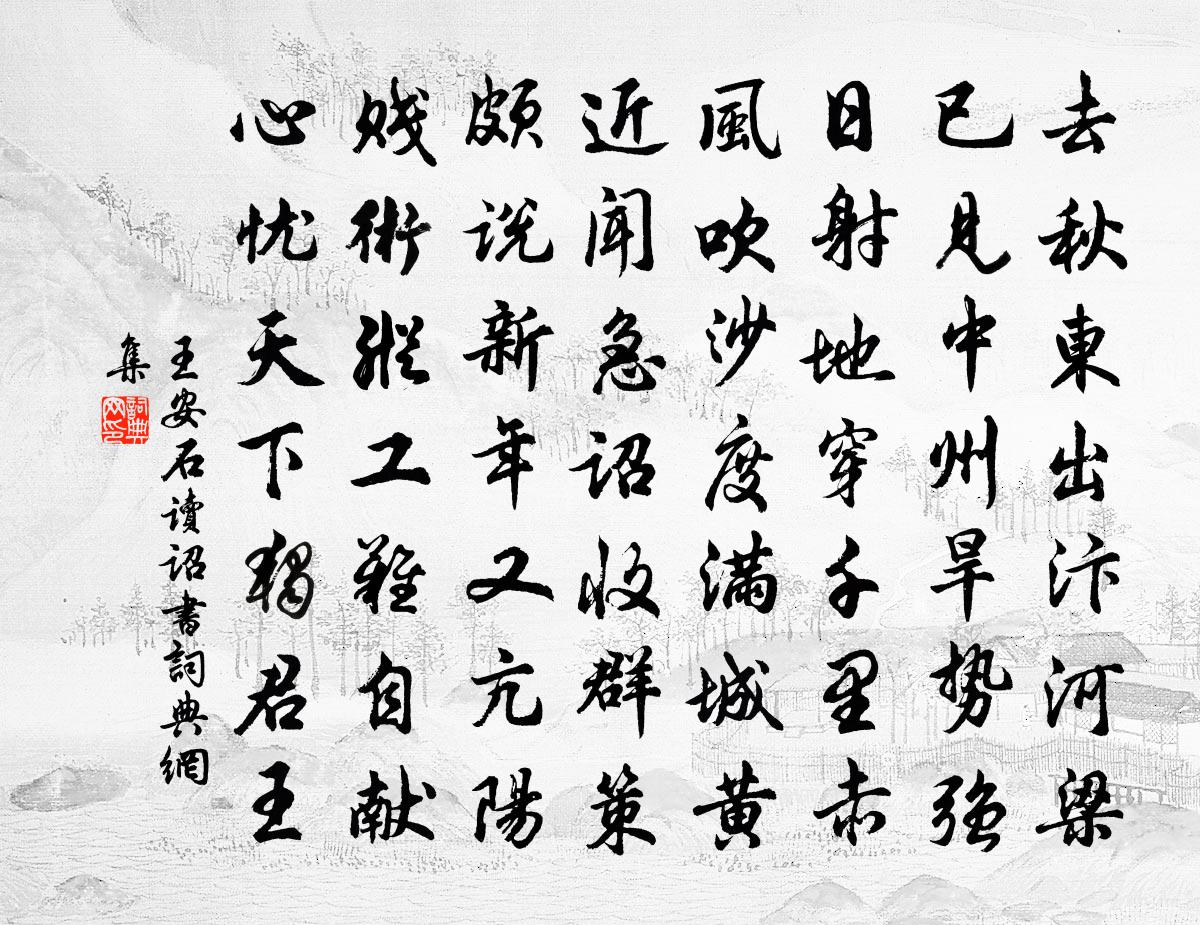 去秋東出汴河梁
已見中州旱勢強
日射地穿千里赤
風吹沙度滿城黃
近聞急詔收群策
頗説新年又亢陽
賤術縱工難自献
心忧天下獨君王
王安石讀詔書詞典網
集
詞典
网印